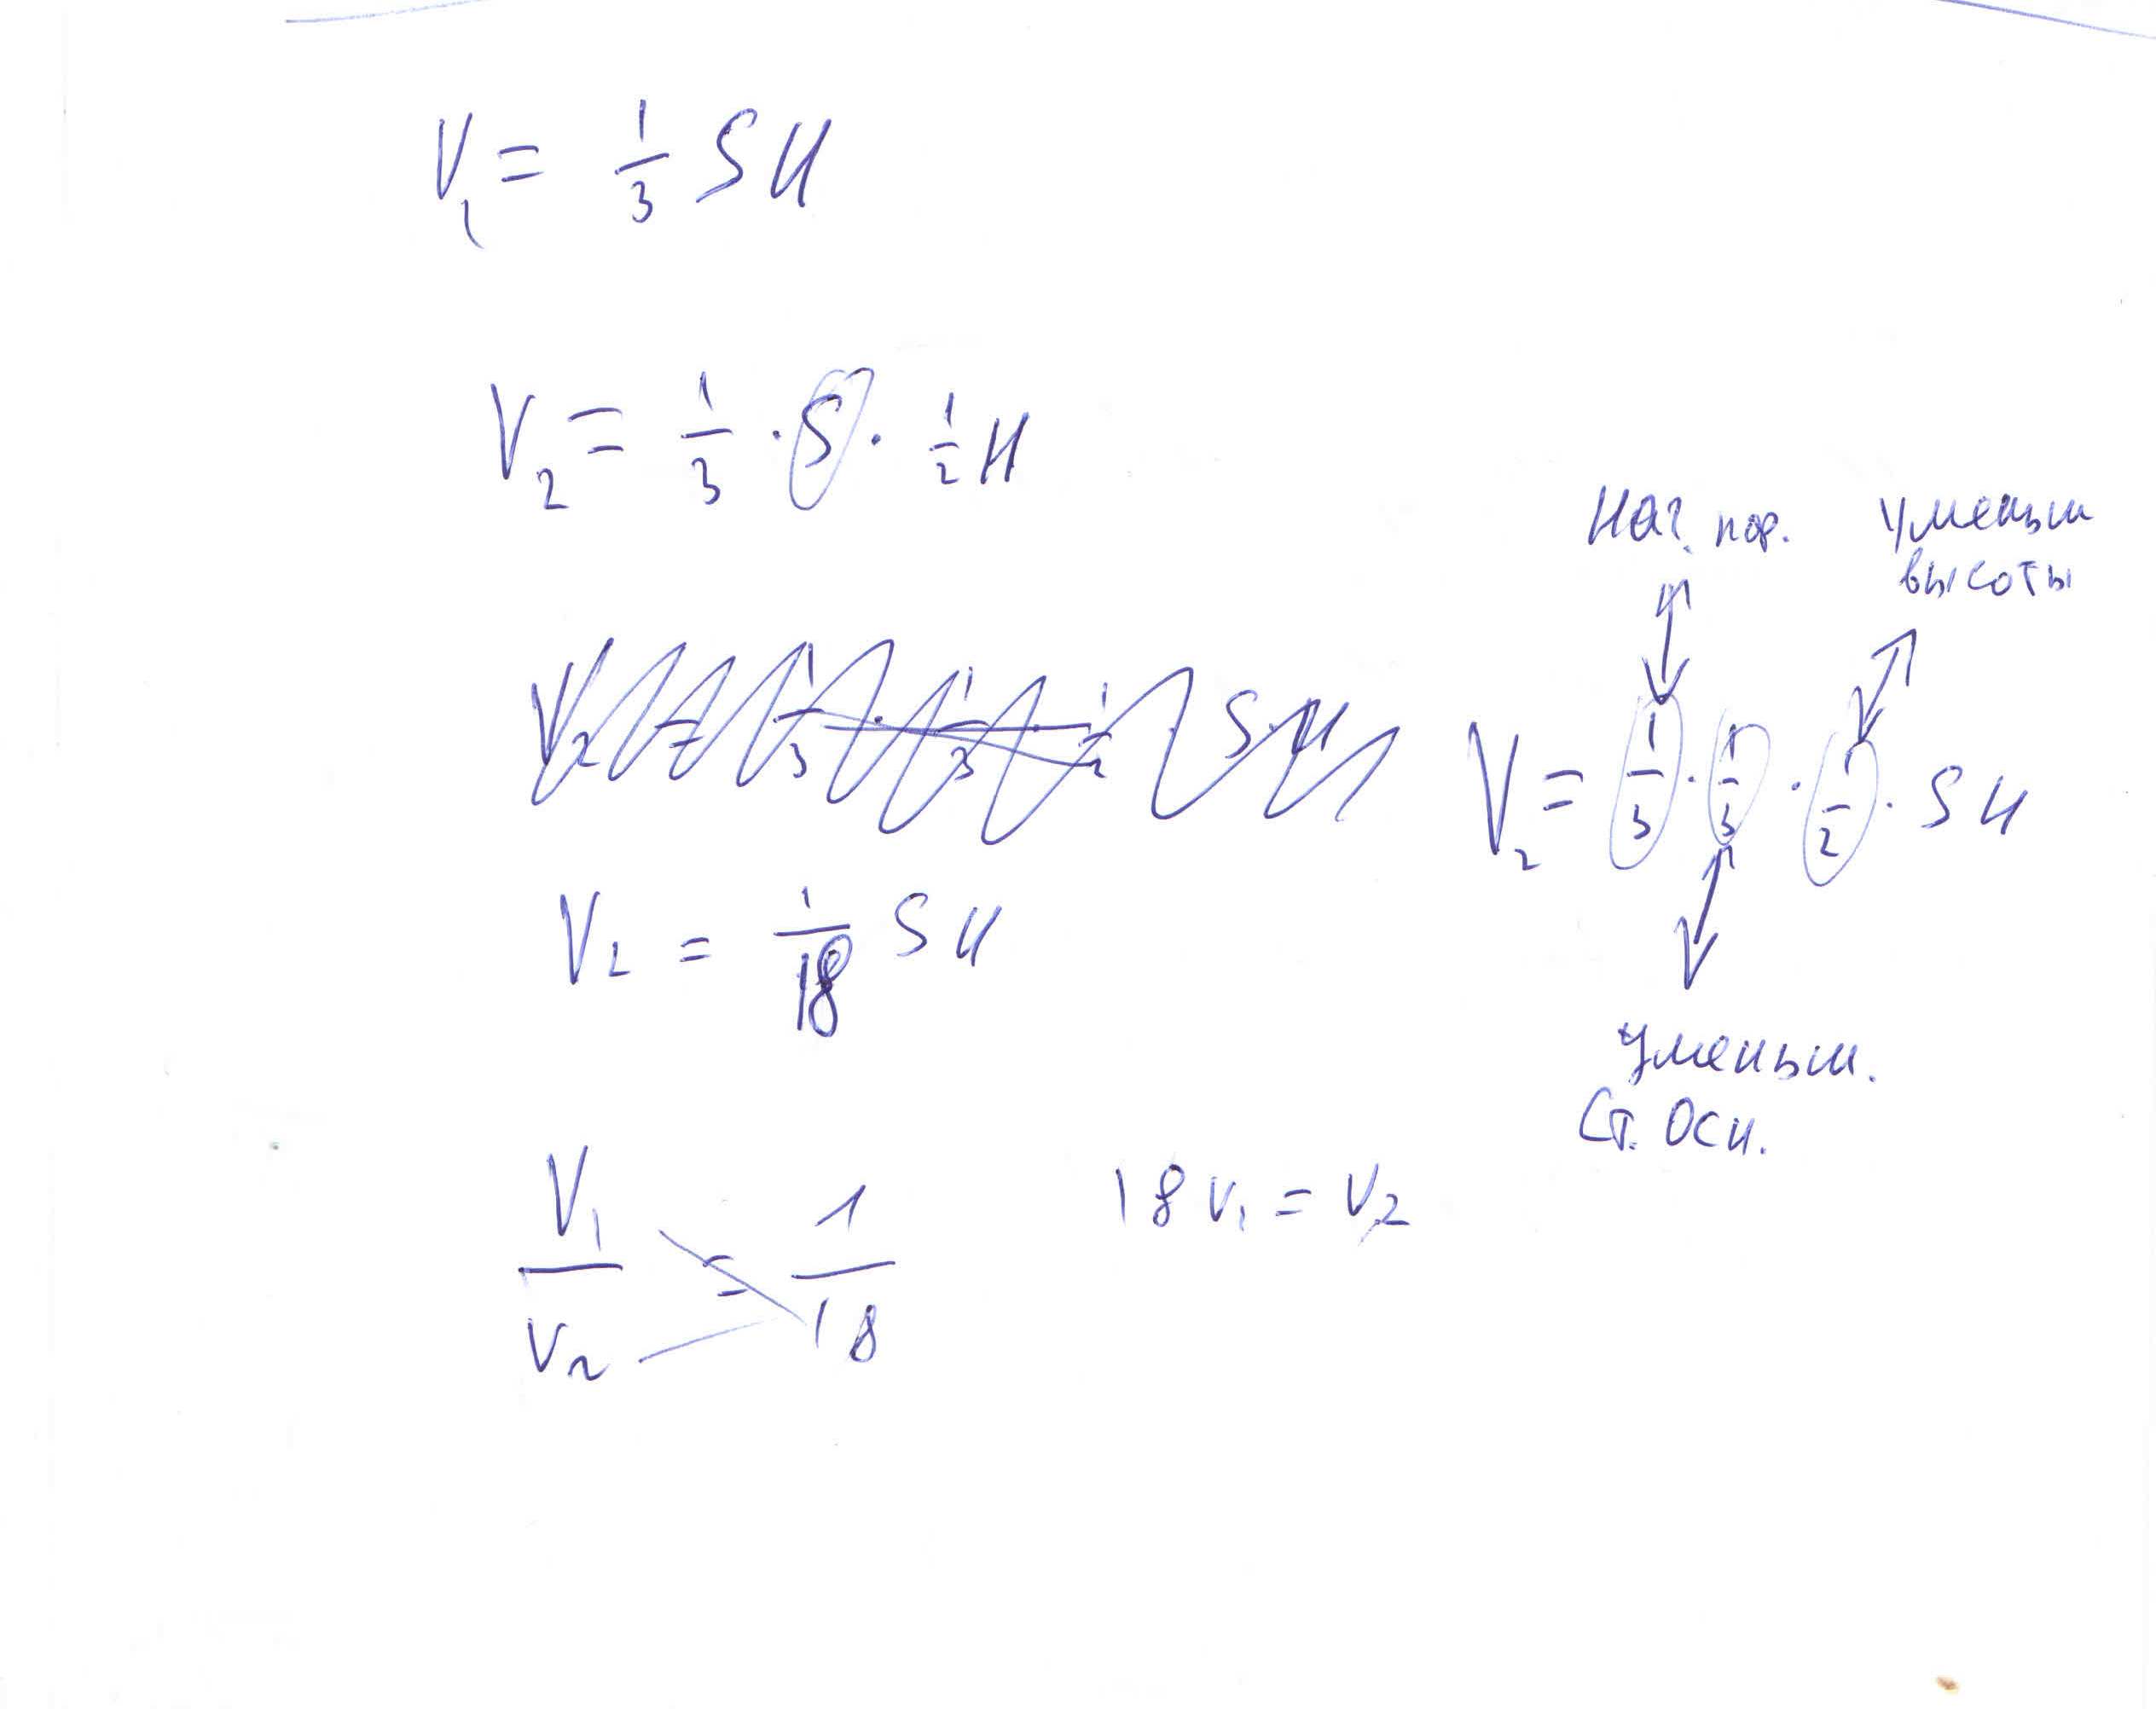 V₁ = 1/3 SH
V₂ = 1/3 · S · 1/2 H
Нач. пор. Уменьш
высоты
V₂ = 1/3 · 1/3 · 1/2 SH
V₂ = 1/3 · 1/3 · 1/2 · SH
V₂ = 1/18 SH
Уменьш.
Ст. Осн.
V₁/V₂ = 1/18
18V₁ = V₂